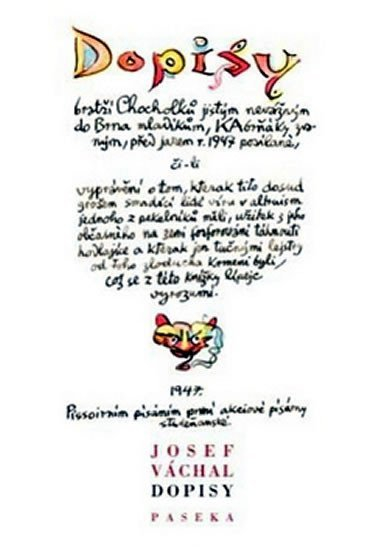 Dopisy
bratří Chocholků jistým nevážným
do Brna mladíkům, KAbrňáky zva-
ným, před jarem r. 1947 posílané,
či-li
vyprávění o tom, kterak tito dosud
grošem smrdící lidé víru v altruism
jednoho z pekelníků měli, užitek z jeho
občasného na zemi fosforování táhnouti
hodlajíce a kterak jen tučnými lejstry
od toho zloducha krmeni byli,
což se z této knížky lépeje
vyrozumí.
1947.
Pissoirním písáním první akciové písárny
studeňanské
JOSEF
VÁCHAL
DOPISY
PASEKA